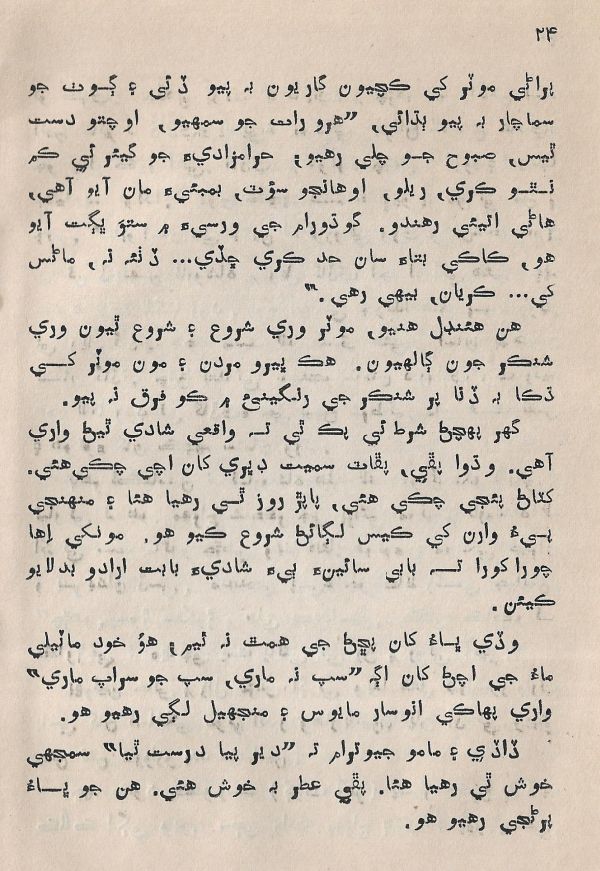 ۲۴
پراڻي موٽر کي ڪچيون گاريون بہ پيو ڏئي ۽ ڳوٺ جو
سماچار بہ پيو ٻڌائي، ”هرو رات جو سمهيو، اوچتو دست
ٿيس، صبوح جو چلي رهيو؛ حرامزاديءَ جو گيئر ئي ڪم
نٿو ڪري، ريلو، اوهانجو سؤٽ، بمبئيءَ مان آيو آهي،
هاڻي اتيئي رهندو. گوڌورام جي ورسيءَ ۾ ستوَ ڀڳت آيو
هو، ڪاڪي بتاءَ سان حد ڪري ڇڏي... ڏٺئہ نہ، ماٺس
کي... ڪريان، بيهي رهي.“
هن هئنڊل هنيو، موٽر وري شروع ۽ شروع ٿيون وري
شنڪر جون ڳالهيون. هڪ ڀيرو مردن ۽ مون موٽر کي
ڌڪا بہ ڏنا پر شنڪر جي رنگينيءَ ۾ ڪو فرق نہ پيو.
گهر پهچڻ شرط ئي پڪ ٿي تہ واقعي شادي ٿيڻ واري
آهي. وڌوا پڦي، پڦاٽ سميت ڊڀري کان اچي چڪي هئي.
ڪٽاڻ پئجي چڪي هئي، پاپڙ روز تري رهيا هئا ۽ منهنجي
پيءُ وارن کي ڪيس لڳائڻ شروع ڪيو هو. مونکي اِها
چوراکورا تہ بابي سائينءَ ٻيءَ شاديءَ بابت ارادو بدلايو
ڪيئن.
وڏي ڀاءُ کان پڇڻ جي همٿ نہ ٿيم؛ هوُ خود ماٽيلي
ماءُ جي اچڻ کان اڳہ ”سپ نہ ماري، سپ جو سراپ ماري“
واري پهاڪي انوسار مايوس ۽ منجهيل لڳي رهيو هو.
ڏاڏي ۽ مامو جيوترام تہ ”دير پيا درست ٿيا“ سمجهي
خوش ٿي رهيا هئا. پڦي عطر بہ خوش هئي. هن جو ڀاءُ
پرڻجي رهيو هو.